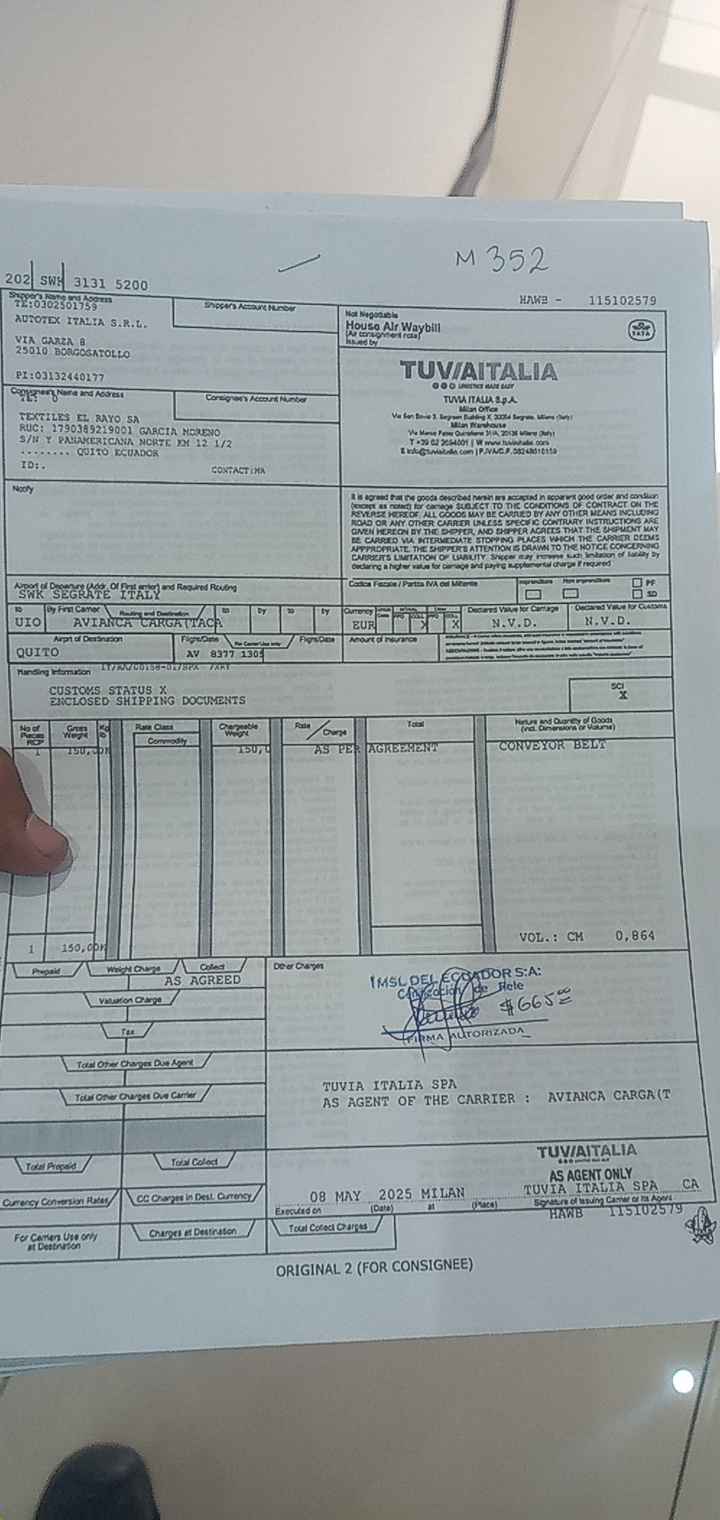 M 352
202 SWK 3131 5200
HAWB - 115102579
Shipper's Name and Address
TE:0302501759
AUTOTEX ITALIA S.R.L.
VIA GARZA 8
25010 BORGOSATOLLO
PI:03132440177
Shipper's Account Number
Not Negotiable
House Air Waybill
(Air consignment note)
Issued by
TUVIAITALIA
LOGISTICS MADE EASY
TUVIA ITALIA S.p.A.
Milan Office
Milan Warehouse
Consignee's Name and Address
Consignee's Account Number
TEXTILES EL RAYO SA
RUC: 1790389219001 GARCIA MORENO
S/N Y PANAMERICANA NORTE KM 12 1/2
........ QUITO ECUADOR
ID:.
CONTACT:MA
Notify
It is agreed that the goods described herein are accepted in apparent good order and condition
(except as noted) for carriage SUBJECT TO THE CONDITIONS OF CONTRACT ON THE
REVERSE HEREOF. ALL GOODS MAY BE CARRIED BY ANY OTHER MEANS INCLUDING
ROAD OR ANY OTHER CARRIER UNLESS SPECIFIC CONTRARY INSTRUCTIONS ARE
GIVEN HEREON BY THE SHIPPER, AND SHIPPER AGREES THAT THE SHIPMENT MAY
BE CARRIED VIA INTERMEDIATE STOPPING PLACES WHICH THE CARRIER DEEMS
APPROPRIATE. THE SHIPPER'S ATTENTION IS DRAWN TO THE NOTICE CONCERNING
CARRIER'S LIMITATION OF LIABILITY. Shipper may increase such limitation of liability by
declaring a higher value for carriage and paying supplemental charge if required
Airport of Departure (Addr. Of First carrier) and Required Routing
SWK SEGRATE ITALY
Codice Fiscale / Partita IVA del Mittente
PF
SD
to
By First Carrier
Routing and Destination
to
by
to
by
Currency
Declared Value for Carriage
Declared Value for Customs
UIO
AVIANCA CARGA(TACA
EUR
X
X
N.V.D.
N.V.D.
Airprt of Destination
Flight/Date
For Carrier Use only
Flight/Date
Amount of Insurance
QUITO
AV 8377 1305
Handling Information
CUSTOMS STATUS X
ENCLOSED SHIPPING DOCUMENTS
SCI
X
No of Pieces RCP
Gross Weight
Kg lb
Rate Class
Commodity
Chargeable Weight
Rate / Charge
Total
Nature and Quantity of Goods
(incl. Dimensions or Volume)
1
150,00K
150,0
AS PER AGREEMENT
CONVEYOR BELT
VOL.: CM 0,864
1 150,00K
Prepaid
Weight Charge
Collect
Other Charges
AS AGREED
IMSL DEL ECUADOR S:A:
Cancelación de Flete
$665.00
FIRMA AUTORIZADA
Valuation Charge
Tax
Total Other Charges Due Agent
TUVIA ITALIA SPA
AS AGENT OF THE CARRIER : AVIANCA CARGA(T
Total Other Charges Due Carrier
Total Prepaid
Total Collect
TUVIAITALIA
AS AGENT ONLY
TUVIA ITALIA SPA CA
Currency Conversion Rates
CC Charges in Dest. Currency
08 MAY 2025 MILAN
Executed on (Date) at (Place)
Signature of Issuing Carrier or its Agent
HAWB 115102579
For Carriers Use only
at Destination
Charges at Destination
Total Collect Charges
ORIGINAL 2 (FOR CONSIGNEE)